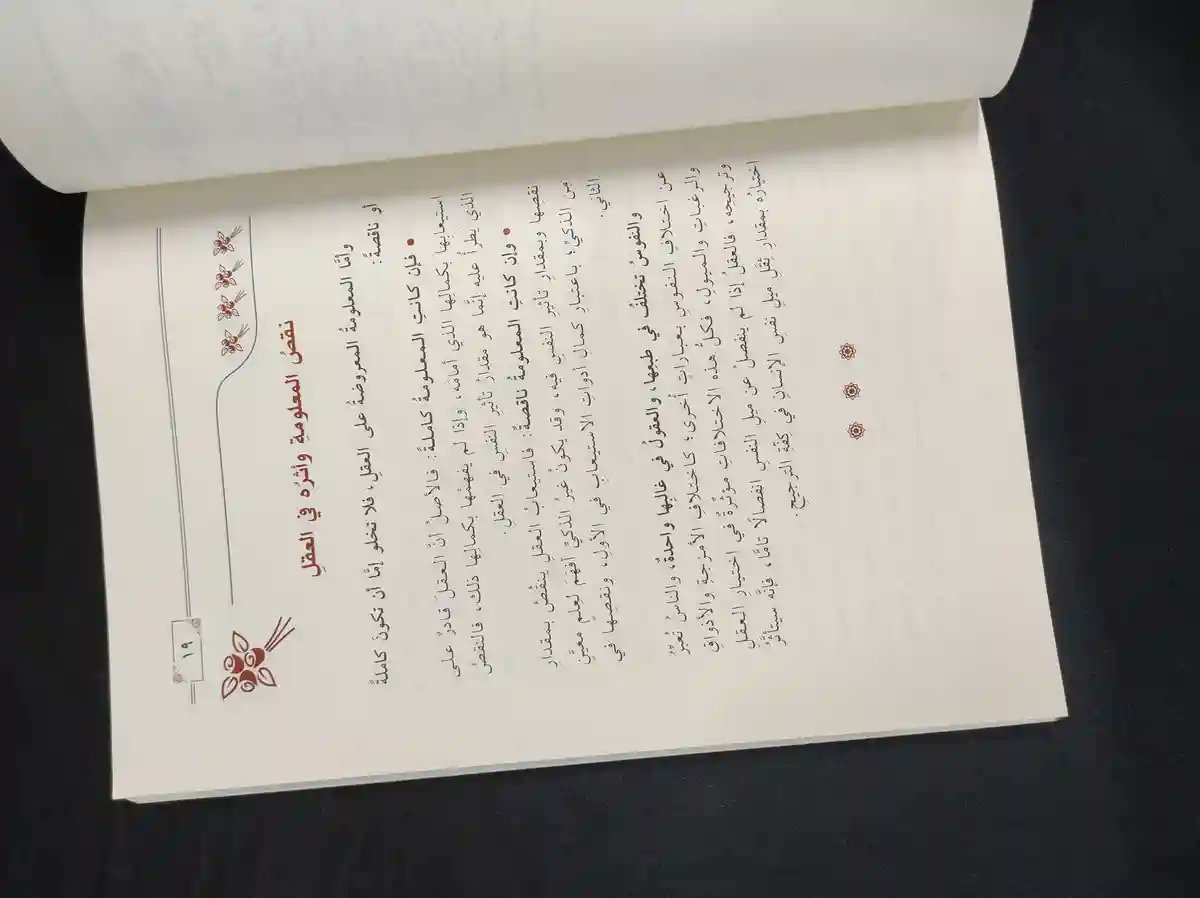 ١٩
نقصُ المعلومةِ وأثرُه في العقلِ
وأمَّا المعلومةُ المعروضةُ على العقلِ، فلا تخلو إمَّا أن تكونَ كاملةً
أو ناقصةً:
• فإن كانتِ المعلومةُ كاملةً: فالأصلُ أنَّ العقلَ قادرٌ على
استيعابِها بكمالِها الذي أمامَه، وإذا لم يفهمْها بكمالِها ذلك، فالنقصُ
الذي يطرأُ عليه إنَّما هو مقدارُ تأثيرِ النفسِ في العقلِ.
• وإن كانتِ المعلومةُ ناقصةً: فاستيعابُ العقلِ ينقُصُ بمقدارِ
نقصِها وبمقدارِ تأثيرِ النفسِ فيه، وقد يكونُ غيرُ الذكيِّ أفهَمَ لعلمٍ معيَّنٍ
مِن الذكيِّ؛ باعتبارِ كمالِ أدواتِ الاستيعابِ في الأولِ، ونقصِها في
الثاني.
والنفوسُ تختلفُ في طبعِها، والعقولُ في غالبِها واحدةٌ، والناسُ تُعبِّرُ
عن اختلافِ النفوسِ بعباراتٍ أُخرى؛ كاختلافِ الأمزجةِ والأذواقِ
والرغباتِ والميولِ، فكلُّ هذه الاختلافاتِ مؤثِّرةٌ في اختيارِ العقلِ
وترجيحِه، فالعقلُ إذا لم ينفصلْ عن ميلِ النفسِ انفصالًا تامًّا، فإنَّه سيتأثَّرُ
اختيارُه بمقدارِ ثِقَلِ ميلِ نفسِ الإنسانِ في كفَّةِ الترجيحِ.